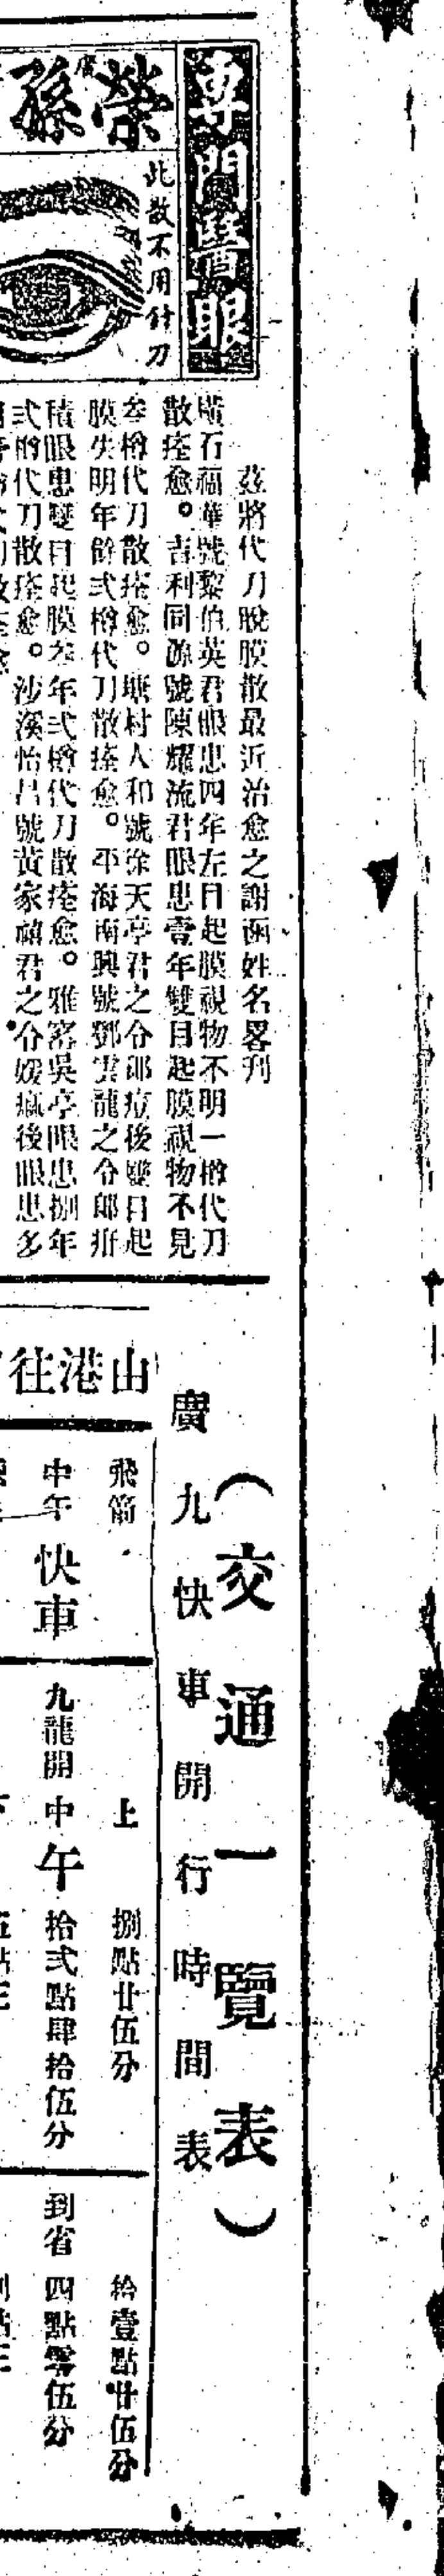 專門醫眼
榮孫
此散不用針刀
茲將代刀脫膜散最近治愈之謝函姓名畧刋
橫石福華號黎伯英君眼患四年左目起膜視物不明一樽代刀
散痊愈。吉利同源號陳耀流君眼患壹年雙目起膜視物不見
叁樽代刀散痊愈。塘村人和號徐天亭君之令郎痘後雙目起
膜失明年餘弍樽代刀散痊愈。平海南興號鄧雲龍之令郎疳
積眼患雙目起膜叁年弍樽代刀散痊愈。雅窰吳亭眼患捌年
弍樽代刀散痊愈。沙溪怡昌號黃家禧君之令媛痲後眼患多
（交通一覽表）
廣九快車開行時間表
山港往
飛箭 上 捌點廿伍分 拾壹點廿伍分
中午快車 九龍開 中午 拾弍點肆拾伍分 到省 四點零伍分